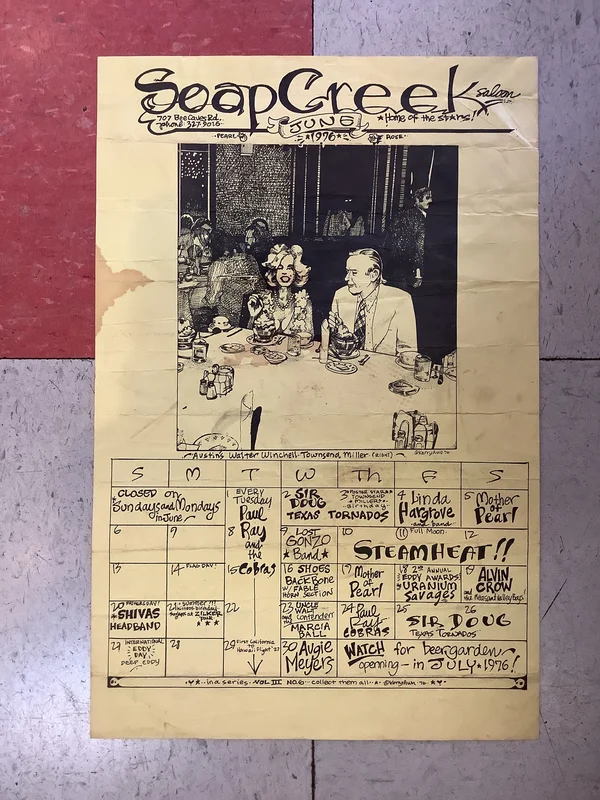 Soap Creek Saloon
707 Bee Caves Rd.
phone 327-9016
JUNE
★ Home of the stars!
·PEARL·
★1976★
ROSE·
Austin's Walter Winchell-Townsend Miller (RIGHT)
S M T W Th F S
CLOSED on
Sundays and Mondays
in June
1 EVERY
Tuesday
Paul
2 SIR
DOUG
TEXAS TORNADOS
3
TOWNSEND
MILLER'S
Birthday
4 Linda
Hargrove
and band
5 Mother
of
Pearl
6
7
8 Ray
and
the
9 LOST
GONZO
★ Band ★
10
11 Full Moon
12
STEAMHEAT!!
13
14 FLAG DAY!
15 Cobras
16 SHOES
and
BACKBONE
W/FABLE
HORN SECTION
17 Mother
of
Pearl
18 2ND ANNUAL
EDDY AWARDS!
URANIUM
Savages
19
ALVIN
CROW
and the Pleasant Valley Boys
20 FATHERS DAY!
★SHIVAS
HEADBAND
21 Summer!!!
birthday
at ZILKER
PARK
★ ★ ★
22
23 UNCLE
WALT
and Contenders
MARCIA
BALL
24 Paul
Ray
COBRAS
25
26
SIR DOUG
TEXAS TORNADOS
27 INTERNATIONAL
EDDY
DAY
DEEP EDDY
28
29 First California
to
Hawaii Flight '27
30 Augie
Meyers
WATCH for beergarden
opening-in JULY★1976!
in a series · VOL III NO.6 · collect them all